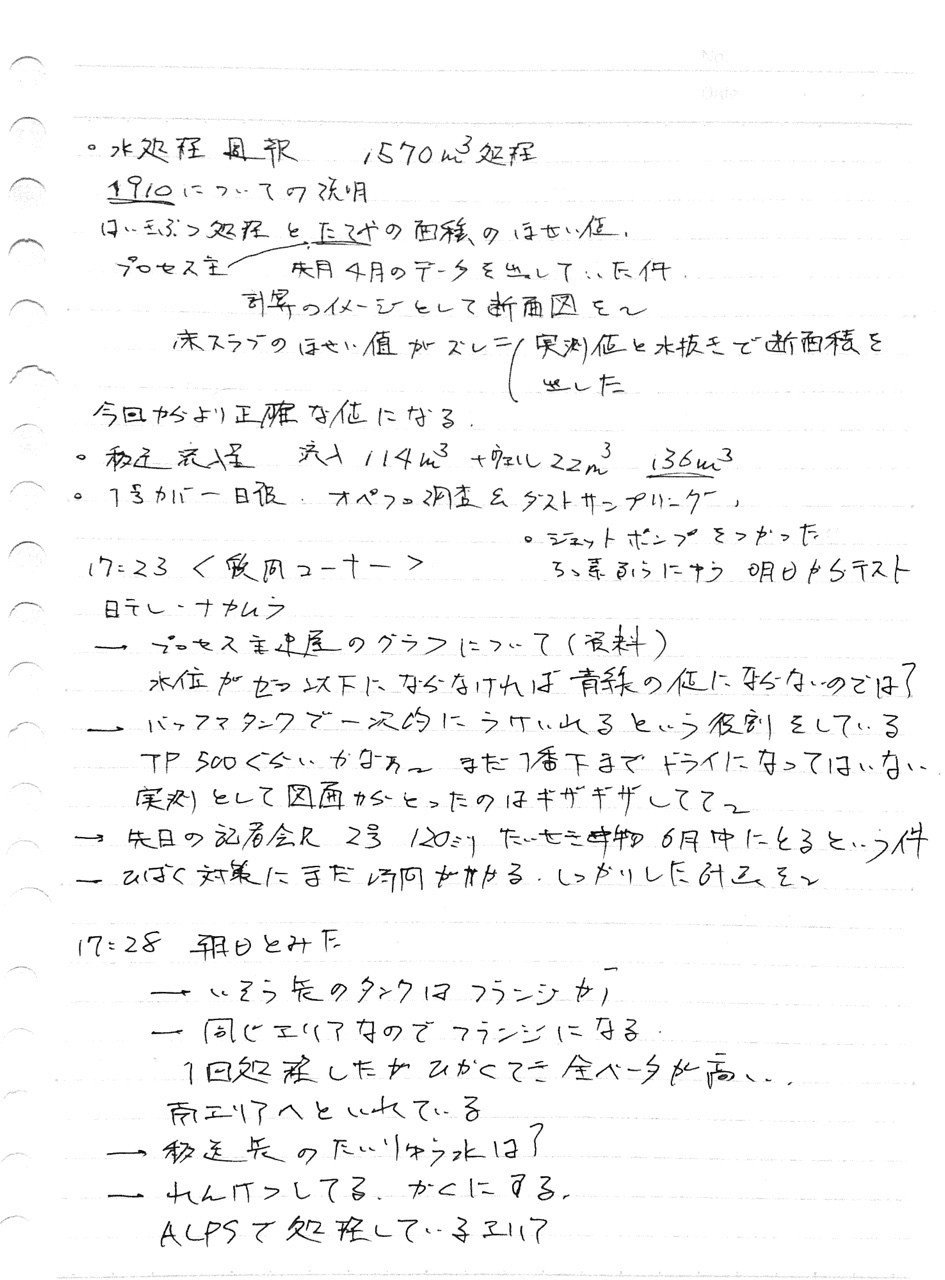 ・水処理週報 1570m³処理
1910についての説明
はいきぶつ処理とたてやの面積のほせい値、
プロセス主 先月4月のデータを出していた件.
計算のイメージとして断面図を〜
床スラブのほせい値がズレ= 実測値と水抜きで断面積を
出した
今回からより正確な値になる.
・移送流入量 流入114m³+ウェル22m³ 136m³
・1号カバー 日報. オペフロ調査&ダストサンプリング、
・ジェットポンプをつかった
ろ過 明日からテスト
17:23 <質問コーナー>
日テレ・ナカムラ
→ プロセス主建屋のグラフについて(資料)
水位がゼロ以下にならなければ青線の値にならないのでは?
→ バッファタンクで一次的にうけいれるという役割をしている
TP 500ぐらいかなあ〜 まだ1番下までドライになってはいない、
実測として図面からとったのはギザギザしてて〜
→ 先日の記者会見 2号 120ミリ たいせき物 6月中にとるという件
→ ひばく対策にまだ時間がかかる. しっかりした計画を〜
17:28 朝日とみた
→ いそう先のタンクはフランジか?
→ 同じエリアなのでフランジになる.
1回処理したがひかくてき全ベータが高い..
南エリアへといれている
→ 移送先のたいりゅう水は?
→ れんけつしてる. かくにする.
ALPSで処理しているエリア